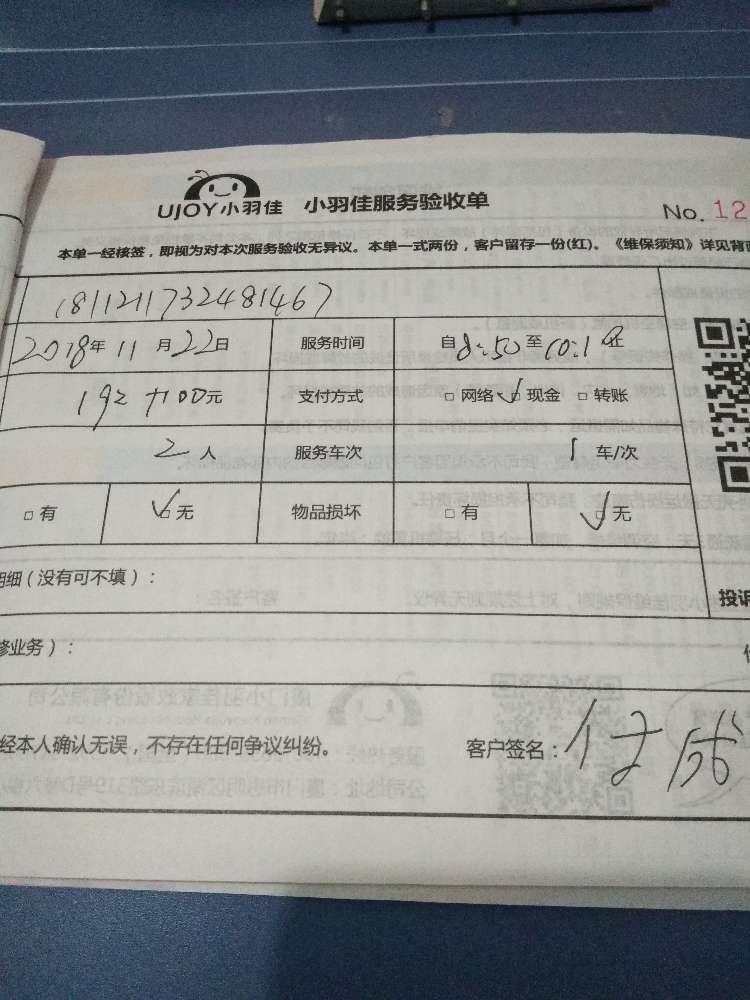 UJOY小羽佳 小羽佳服务验收单
No. 12
本单一经核签，即视为对本次服务验收无异议。本单一式两份，客户留存一份(红)。《维保须知》详见背面
1811211732481467
2018年 11 月 22日 服务时间 自 8:50 至 10:10 止
192+100元 支付方式 □网络 ☑现金 □转账
2 人 服务车次 1 车/次
□有 ☑无 物品损坏 □有 ☑无
明细（没有可不填）：
投诉
修业务）：
经本人确认无误，不存在任何争议纠纷。 客户签名：